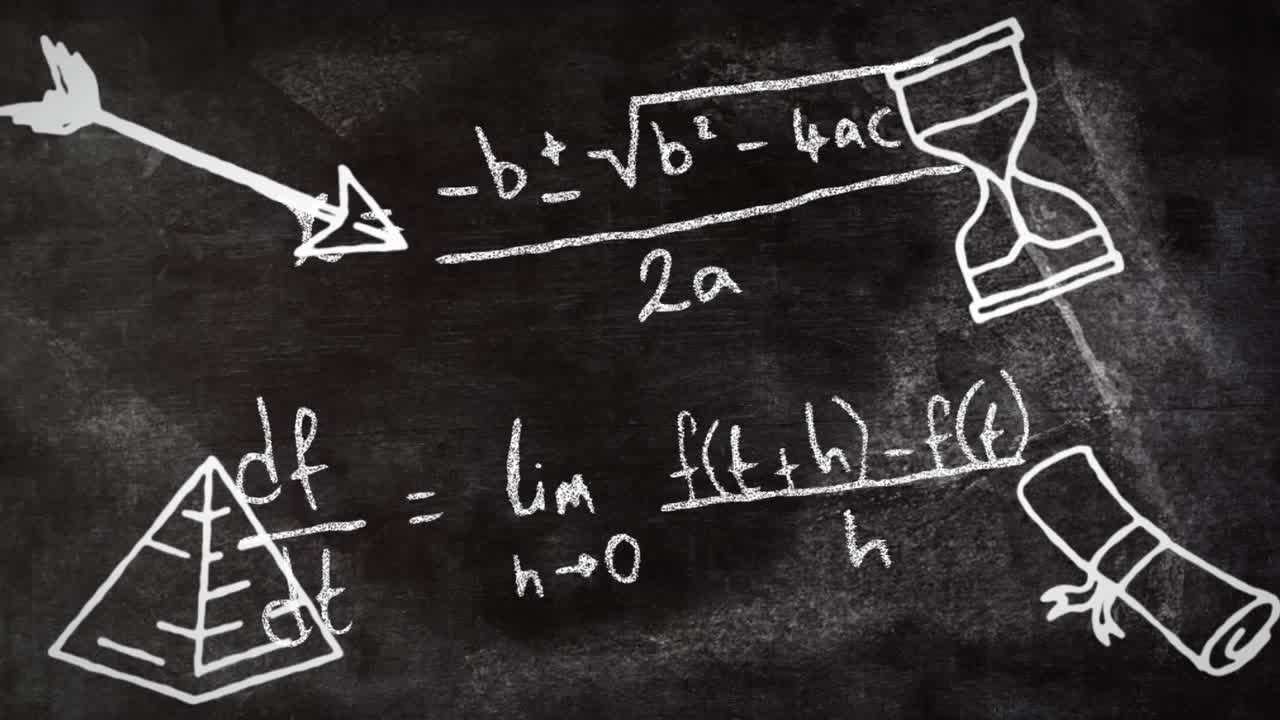 x = (-b ± √(b² - 4ac)) / 2a
df/dt = lim h→0 (f(t+h) - f(t)) / h